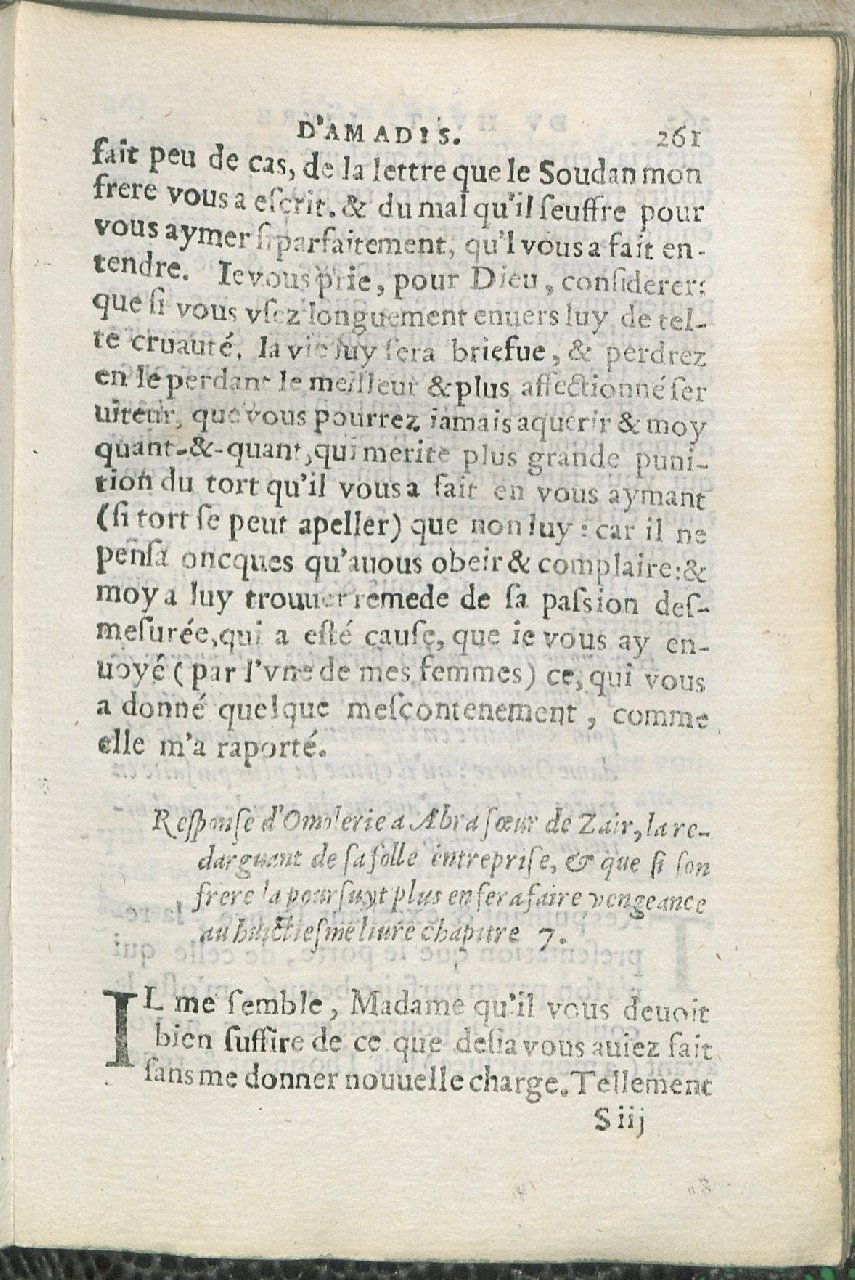 D'AMADIS. 261
fait peu de cas, de la lettre que le Soudan mon
frere vous a escrit. & du mal qu'il seuffre pour
vous aymer si parfaitement, qu'l vous a fait en-
tendre. Ie vous prie, pour Dieu, considerer:
que si vous vsez longuement enuers luy de tel-
te cruauté, la vie luy sera briefue, & perdrez
en le perdant le meilleur & plus affectionné ser
uiteur, que vous pourrez iamais aquerir & moy
quant-&-quant, qui merite plus grande puni-
tion du tort qu'il vous a fait en vous aymant
(si tort se peut apeller) que non luy : car il ne
pensa oncques qu'auous obeir & complaire:&
moy a luy trouuer remede de sa passion des-
mesurée, qui a esté cause, que ie vous ay en-
uoyé ( par l'vne de mes femmes) ce, qui vous
a donné quelque mescontenement, comme
elle m'a raporté.
Response d'Onolerie a Abra sœur de Zair, la re-
darguant de sa folle entreprise, & que si son
frere la poursuyt plus en fera faire vengeance
au huictiesme liure chapitre 7.
IL me semble, Madame qu'il vous deuoit
bien suffire de ce que desia vous auiez fait
sans me donner nouuelle charge. Tellement
S iij